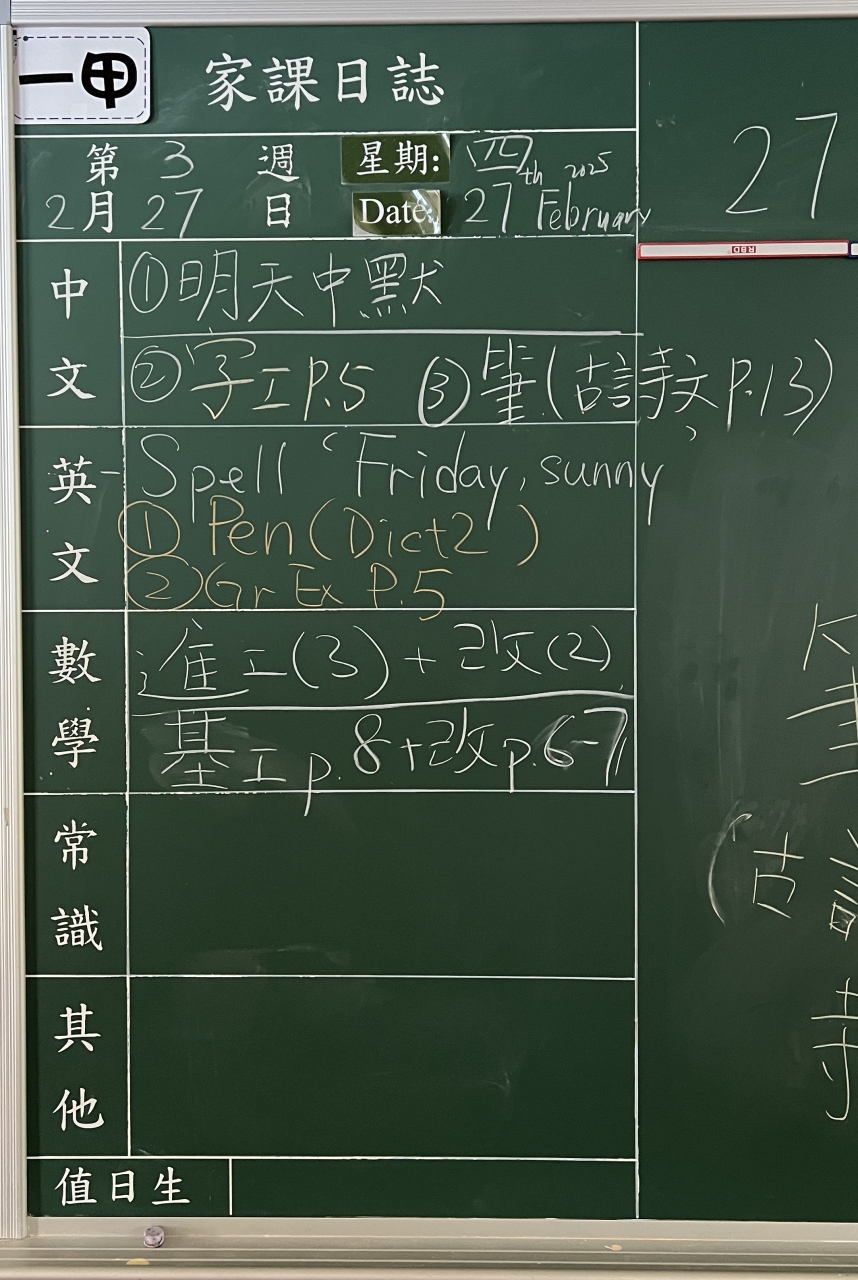 一甲 家課日誌
第 3 週 星期: 四
2月 27 日 Date: 27th February 2025
27
中文
①明天中默
②字工P.5 ③筆(古詩文P.13)
英文
Spell ‘Friday, sunny’
① Pen (Dict 2)
② Gr Ex P.5
數學
進工(3) + 改(2)
基工p.8+改p.6-7
常識
其他
值日生
筆
(古詩